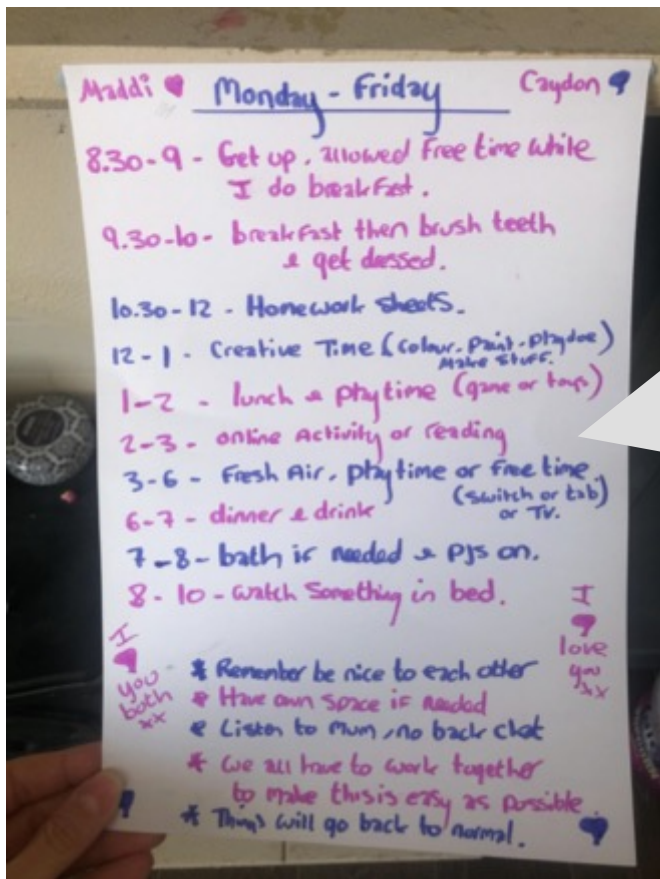 Maddi Monday - Friday Caydon
8.30-9 - Get up, allowed Free time while
I do breakfast.
9.30-10- breakfast then brush teeth
& get dressed.
10.30-12 - Homework sheets.
12-1 - Creative Time (Colour-Paint-Playdoe)
Make stuff.
1-2 - lunch & playtime (game or toys)
2-3 - online Activity or reading
3-6 - Fresh Air, Playtime or free time.
(Switch or tab)
or TV.
6-7 - dinner & drink
7-8 - bath if needed & PJs on.
8-10 - watch Something in bed.
I
you
both
xx
I
love
you
xx
* Remember be nice to each other
* Have own space if needed
* Listen to Mum, no back chat
* We all have to work together
to make this is easy as possible.
* Things will go back to normal.